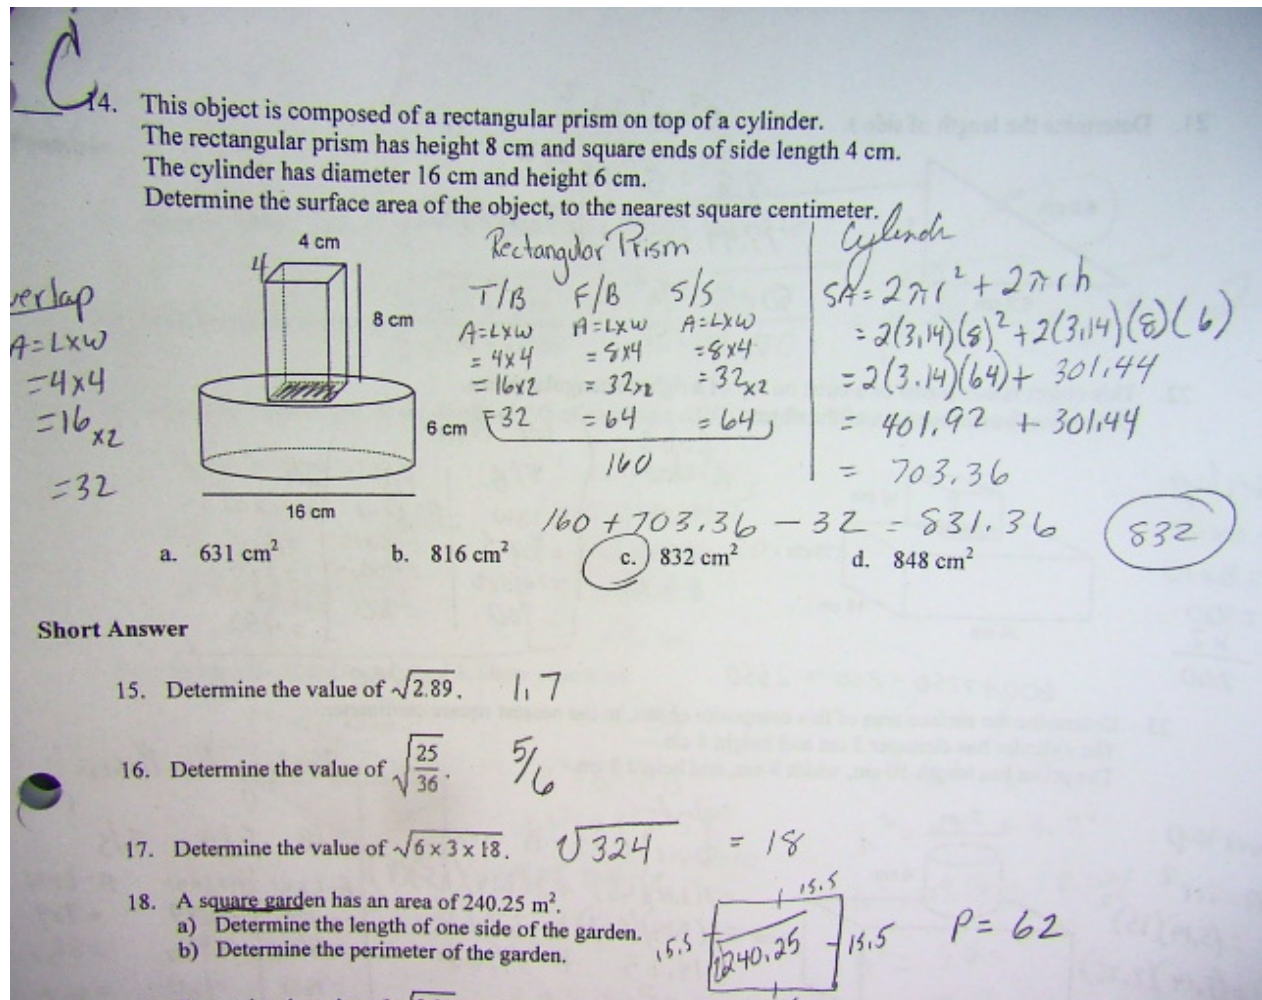 C
14. This object is composed of a rectangular prism on top of a cylinder.
The rectangular prism has height 8 cm and square ends of side length 4 cm.
The cylinder has diameter 16 cm and height 6 cm.
Determine the surface area of the object, to the nearest square centimeter.
verlap
A=LxW
=4x4
=16 x2
=32
4 cm
4
8 cm
6 cm
16 cm
Rectangular Prism
T/B F/B S/S
A=LxW A=LxW A=LxW
=4x4 =8x4 =8x4
=16x2 =32x2 =32x2
=32 =64 =64
160
Cylindr
SA=2πr²+2πrh
=2(3.14)(8)²+2(3.14)(8)(6)
=2(3.14)(64)+ 301.44
= 401.92 + 301.44
= 703.36
160 + 703.36 - 32 = 831.36
832
a. 631 cm² b. 816 cm² c. 832 cm² d. 848 cm²
Short Answer
15. Determine the value of √2.89. 1.7
16. Determine the value of √25/36. 5/6
17. Determine the value of √6 × 3 × 18. √324 = 18
18. A square garden has an area of 240.25 m².
a) Determine the length of one side of the garden.
b) Determine the perimeter of the garden.
15.5
15.5
√240.25
15.5
P= 62